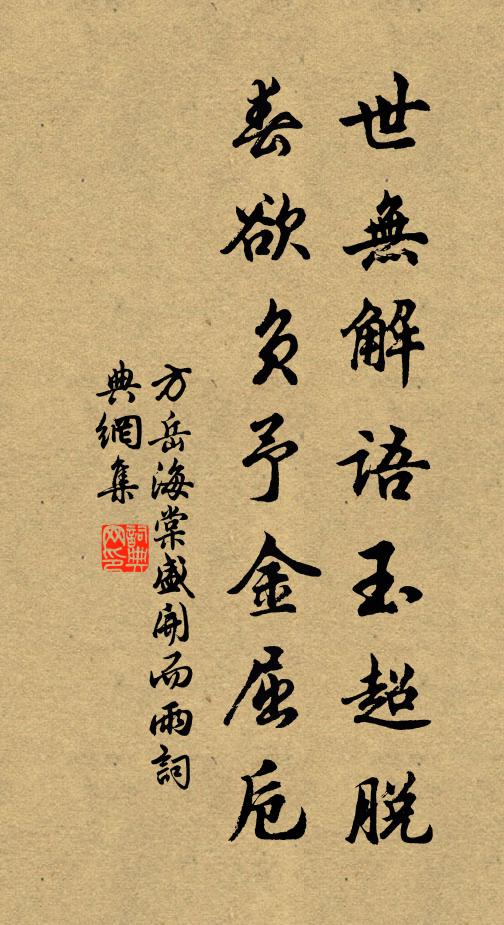 世無解語玉超脫
春欲負予金屈卮
方岳海棠盛開而雨詞
典網集
詞典网印